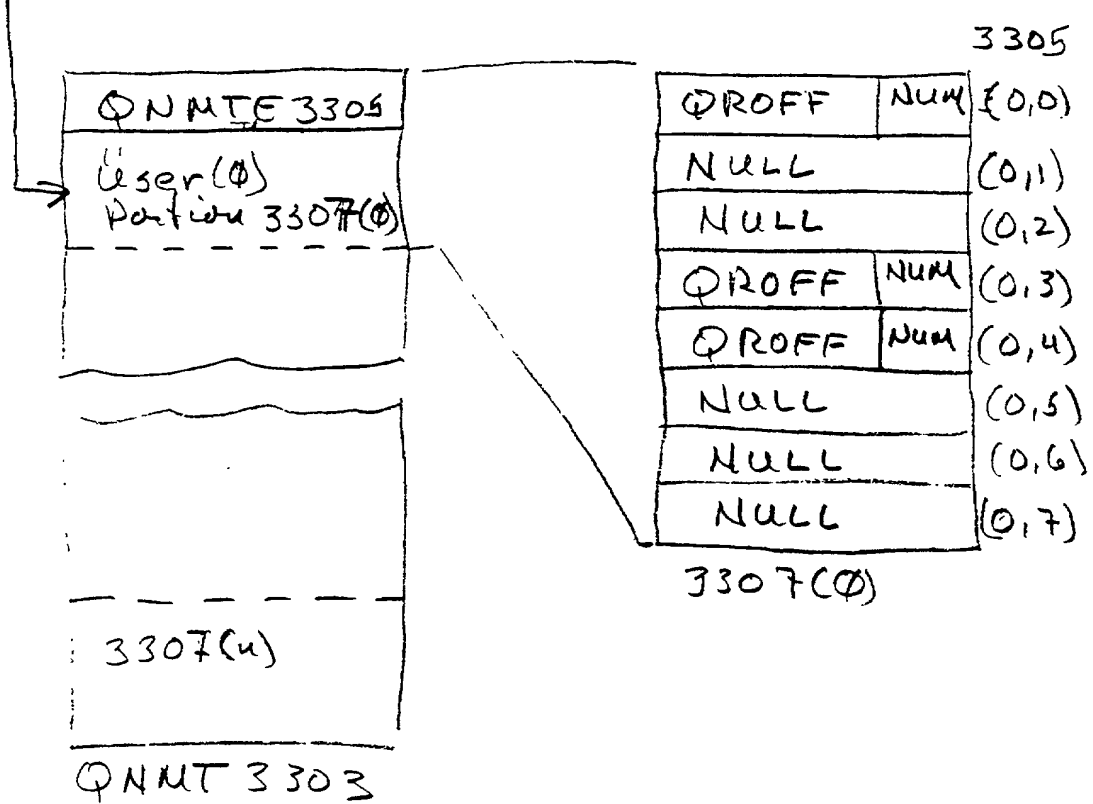 3305
QNMTE 3305
User(0)
Portion 3307(0)
3307(n)
QNMT 3303
QROFF NUM (0,0)
NULL (0,1)
NULL (0,2)
QROFF NUM (0,3)
QROFF NUM (0,4)
NULL (0,5)
NULL (0,6)
NULL (0,7)
3307(0)